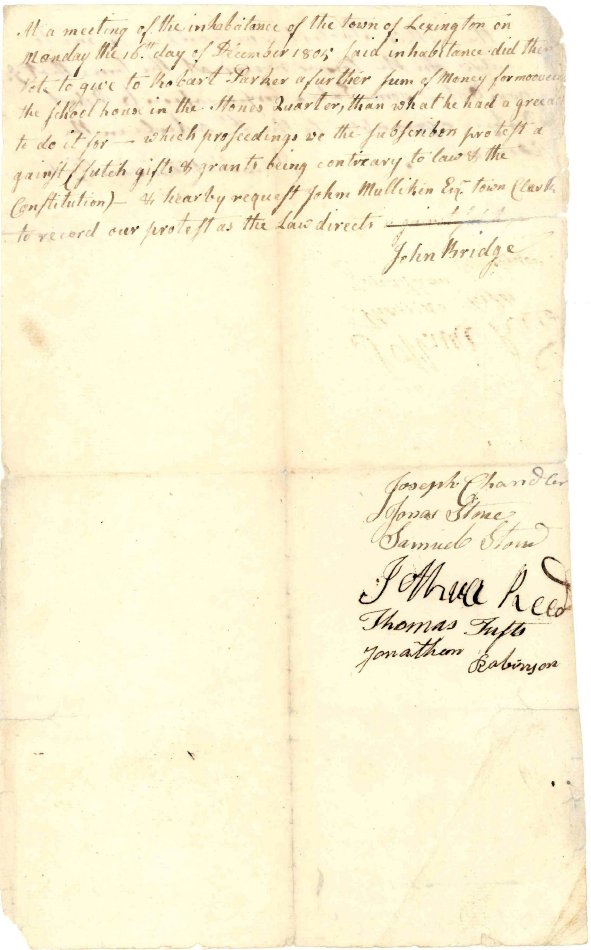 At a meeting of the inhabatance of the town of Lexington on
Monday the 16th day of December 1805 said inhabitance did then
vote to give to Robart Parker a further sum of Money for mooveing
the school house in the Stones Quarter, than what he had agreead
to do it for — which proseedings we the subscribers protest a
gainst (sutch gifts & grants being contreary to law & the
Constitution) — & hearby request John Mullikin Esqr town Clark
to record our protest as the Law directs
John Bridge
Joseph Chandler
Jonas Stone
Samuel Stone
Joshua Reed
Thomas Tufts
Jonathan Robinson